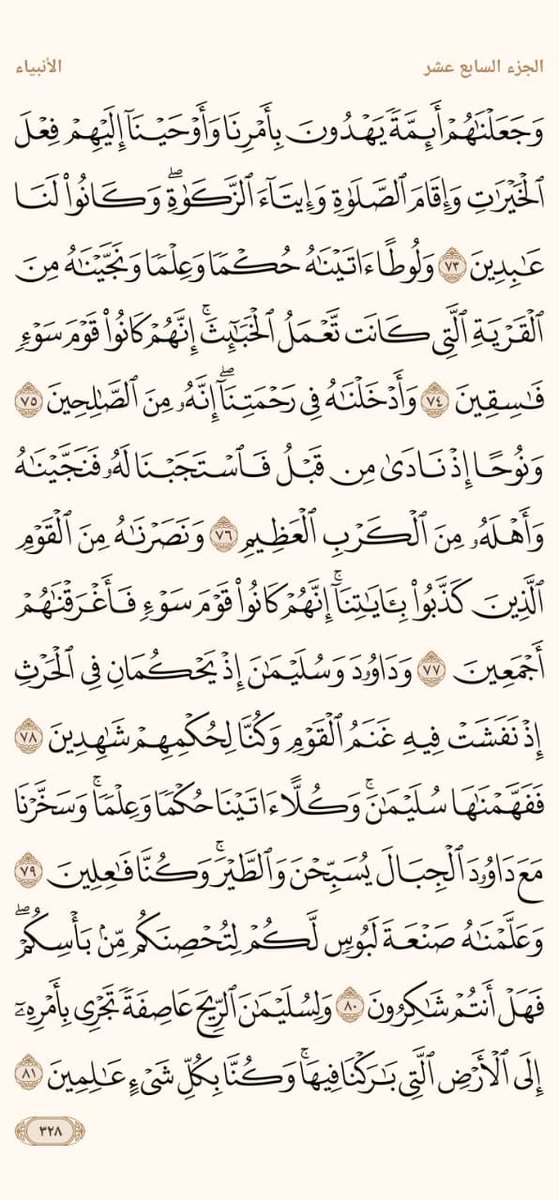 الجزء السابع عشر
الأنبياء
وَجَعَلْنَٰهُمْ أَئِمَّةً يَهْدُونَ بِأَمْرِنَا وَأَوْحَيْنَآ إِلَيْهِمْ فِعْلَ
ٱلْخَيْرَٰتِ وَإِقَامَ ٱلصَّلَوٰةِ وَإِيتَآءَ ٱلزَّكَوٰةِ ۖ وَكَانُوا۟ لَنَا
عَٰبِدِينَ ٧٣ وَلُوطًا ءَاتَيْنَٰهُ حُكْمًا وَعِلْمًا وَنَجَّيْنَٰهُ مِنَ
ٱلْقَرْيَةِ ٱلَّتِى كَانَت تَّعْمَلُ ٱلْخَبَٰٓئِثَ ۚ إِنَّهُمْ كَانُوا۟ قَوْمَ سَوْءٍ
فَٰسِقِينَ ٧٤ وَأَدْخَلْنَٰهُ فِى رَحْمَتِنَآ ۖ إِنَّهُۥ مِنَ ٱلصَّٰلِحِينَ ٧٥
وَنُوحًا إِذْ نَادَىٰ مِن قَبْلُ فَٱسْتَجَبْنَا لَهُۥ فَنَجَّيْنَٰهُ
وَأَهْلَهُۥ مِنَ ٱلْكَرْبِ ٱلْعَظِيمِ ٧٦ وَنَصَرْنَٰهُ مِنَ ٱلْقَوْمِ
ٱلَّذِينَ كَذَّبُوا۟ بِـَٔايَٰتِنَآ ۚ إِنَّهُمْ كَانُوا۟ قَوْمَ سَوْءٍ فَأَغْرَقْنَٰهُمْ
أَجْمَعِينَ ٧٧ وَدَاوُۥدَ وَسُلَيْمَٰنَ إِذْ يَحْكُمَانِ فِى ٱلْحَرْثِ
إِذْ نَفَشَتْ فِيهِ غَنَمُ ٱلْقَوْمِ وَكُنَّا لِحُكْمِهِمْ شَٰهِدِينَ ٧٨
فَفَهَّمْنَٰهَا سُلَيْمَٰنَ ۚ وَكُلًّا ءَاتَيْنَا حُكْمًا وَعِلْمًا ۚ وَسَخَّرْنَا
مَعَ دَاوُۥدَ ٱلْجِبَالَ يُسَبِّحْنَ وَٱلطَّيْرَ ۚ وَكُنَّا فَٰعِلِينَ ٧٩
وَعَلَّمْنَٰهُ صَنْعَةَ لَبُوسٍ لَّكُمْ لِتُحْصِنَكُم مِّنۢ بَأْسِكُمْ ۖ
فَهَلْ أَنتُمْ شَٰكِرُونَ ٨٠ وَلِسُلَيْمَٰنَ ٱلرِّيحَ عَاصِفَةً تَجْرِى بِأَمْرِهِۦٓ
إِلَى ٱلْأَرْضِ ٱلَّتِى بَٰرَكْنَا فِيهَا ۚ وَكُنَّا بِكُلِّ شَىْءٍ عَٰلِمِينَ ٨١
٣٢٨